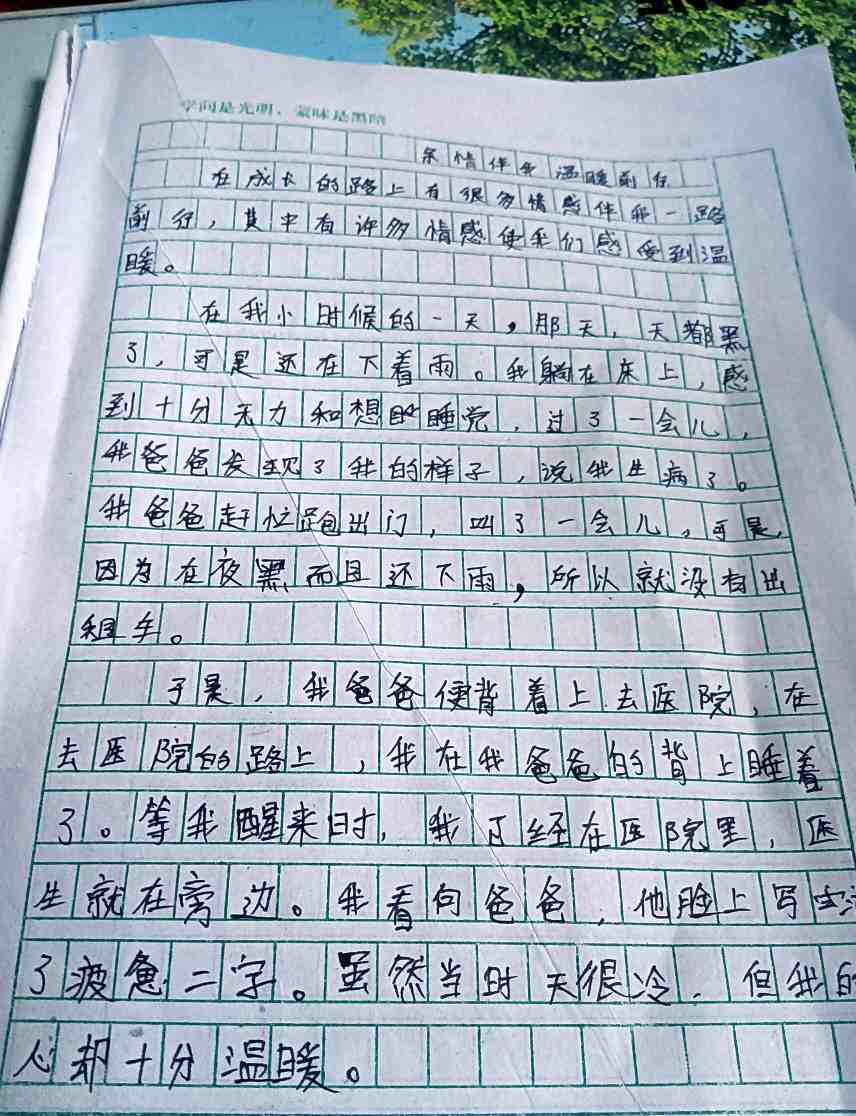 学问是光明,蒙昧是黑暗
亲情伴我温暖前行
在成长的路上有很多情感伴我一路
前行,其中有许多情感使我们感受到温
暖。
在我小时候的一天,那天,天都黑
了,可是还在下着雨。我躺在床上,感
到十分无力和想睡觉,过了一会儿,
我爸爸发现了我的样子,说我生病了。
我爸爸赶忙跑出门,叫了一会儿,可是,
因为在夜黑而且还下雨,所以就没有出
租车。
于是,我爸爸便背着上去医院,在
去医院的路上,我在我爸爸的背上睡着
了。等我醒来时,我已经在医院里,医
生就在旁边。我看向爸爸,他脸上写
了疲惫二字。虽然当时天很冷,但我的
心却十分温暖。